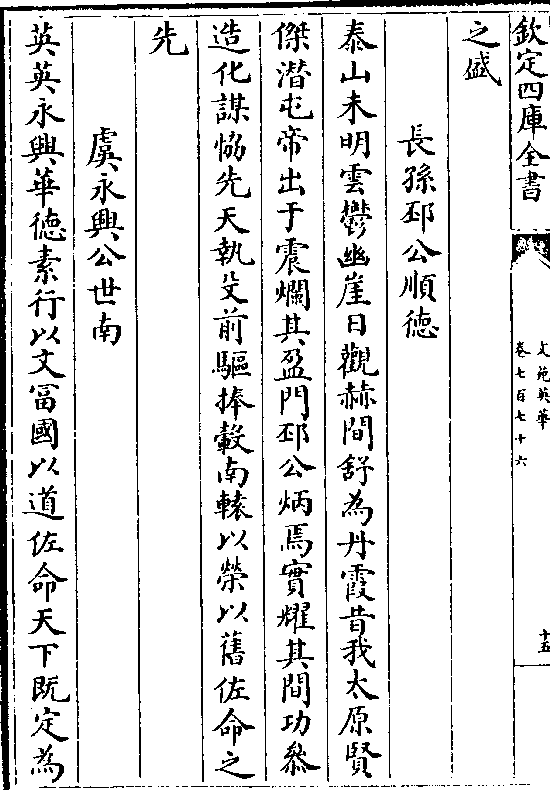 欽定四庫全書
文苑英華
卷七百七十六
十五
之盛
長孫邳公順德
泰山未明雲鬱幽崖日觀赫間舒為丹霞昔我太原賢
傑潛屯帝出于震爛其盈門邳公炳焉實耀其間功叅
造化謀恊先天執殳前驅捧轂南轅以榮以舊佐命之
先
虞永興公世南
英英永興華德素行以文冨國以道佐命天下既定為